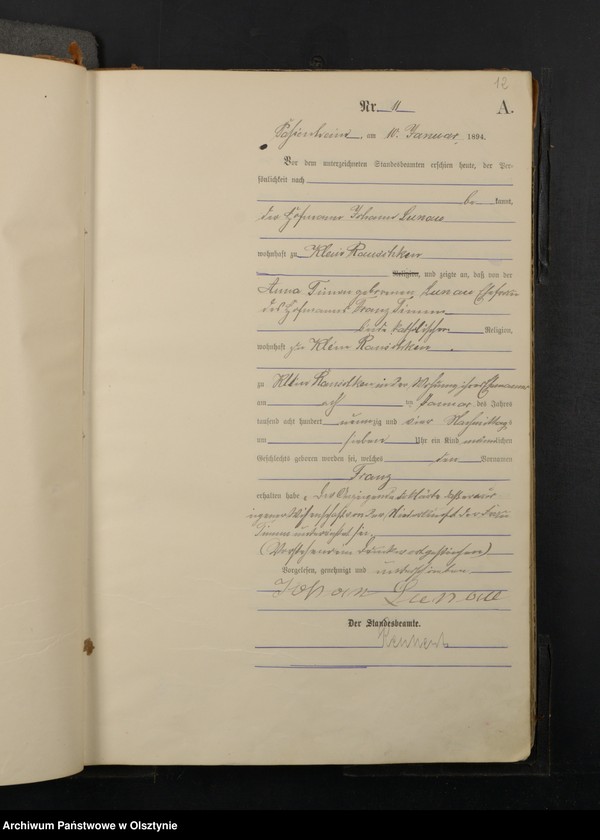 12
Nr. 11 A.
Passenheim am 10. Januar 1894.
Vor dem unterzeichneten Standesbeamten erschien heute, der Per-
sönlichkeit nach
be kannt,
der Hofmann Johann Lunau
wohnhaft zu Klein Rauschken
Religion, und zeigte an, daß von der
Anna Timm geborenen Lunau Ehefrau
des Hofmanns Franz Timm
beide katholischer Religion,
wohnhaft zu Klein Rauschken
zu Klein Rauschken in der Wohnung ihres Ehemannes
am acht ten Januar des Jahres
tausend acht hundert neunzig und vier Nachmittags
um sieben Uhr ein Kind männlichen
Geschlechts geboren worden sei, welches den Vornamen
Franz
erhalten habe. Der Anzeigende erklärte daß er aus
eigener Wissenschaft von der Niederkunft der Frau
Timm unterrichtet sei.
(Vorstehend ein Druckwort gestrichen)
Vorgelesen, genehmigt und unterschrieben
Johan Lunau
Der Standesbeamte.
Archiwum Państwowe w Olsztynie